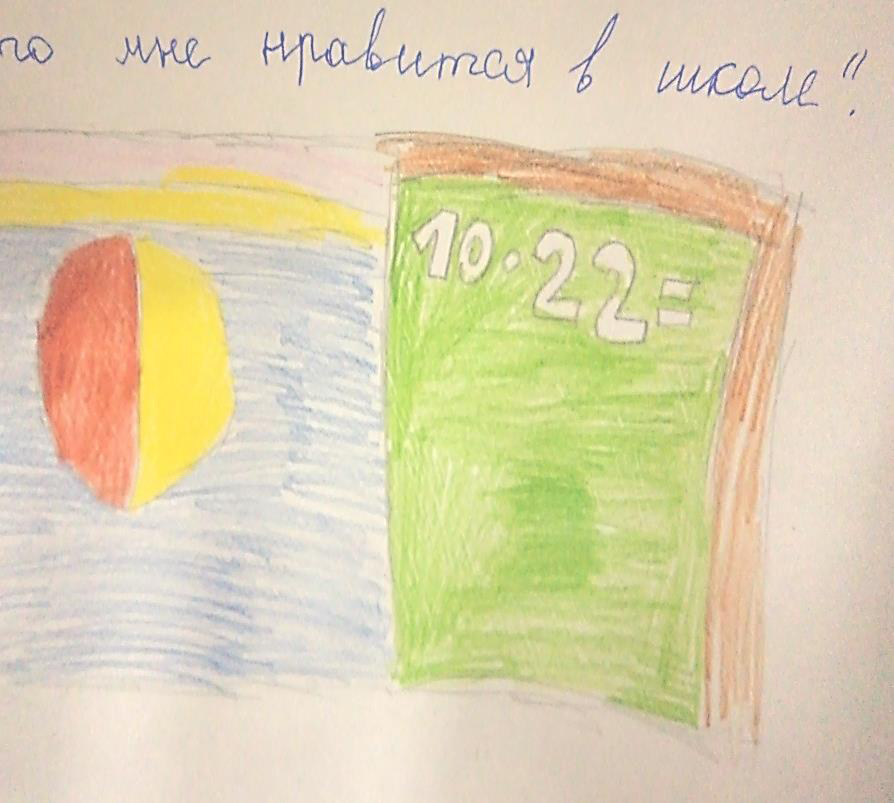 то мне нравится в школе".
10·22=